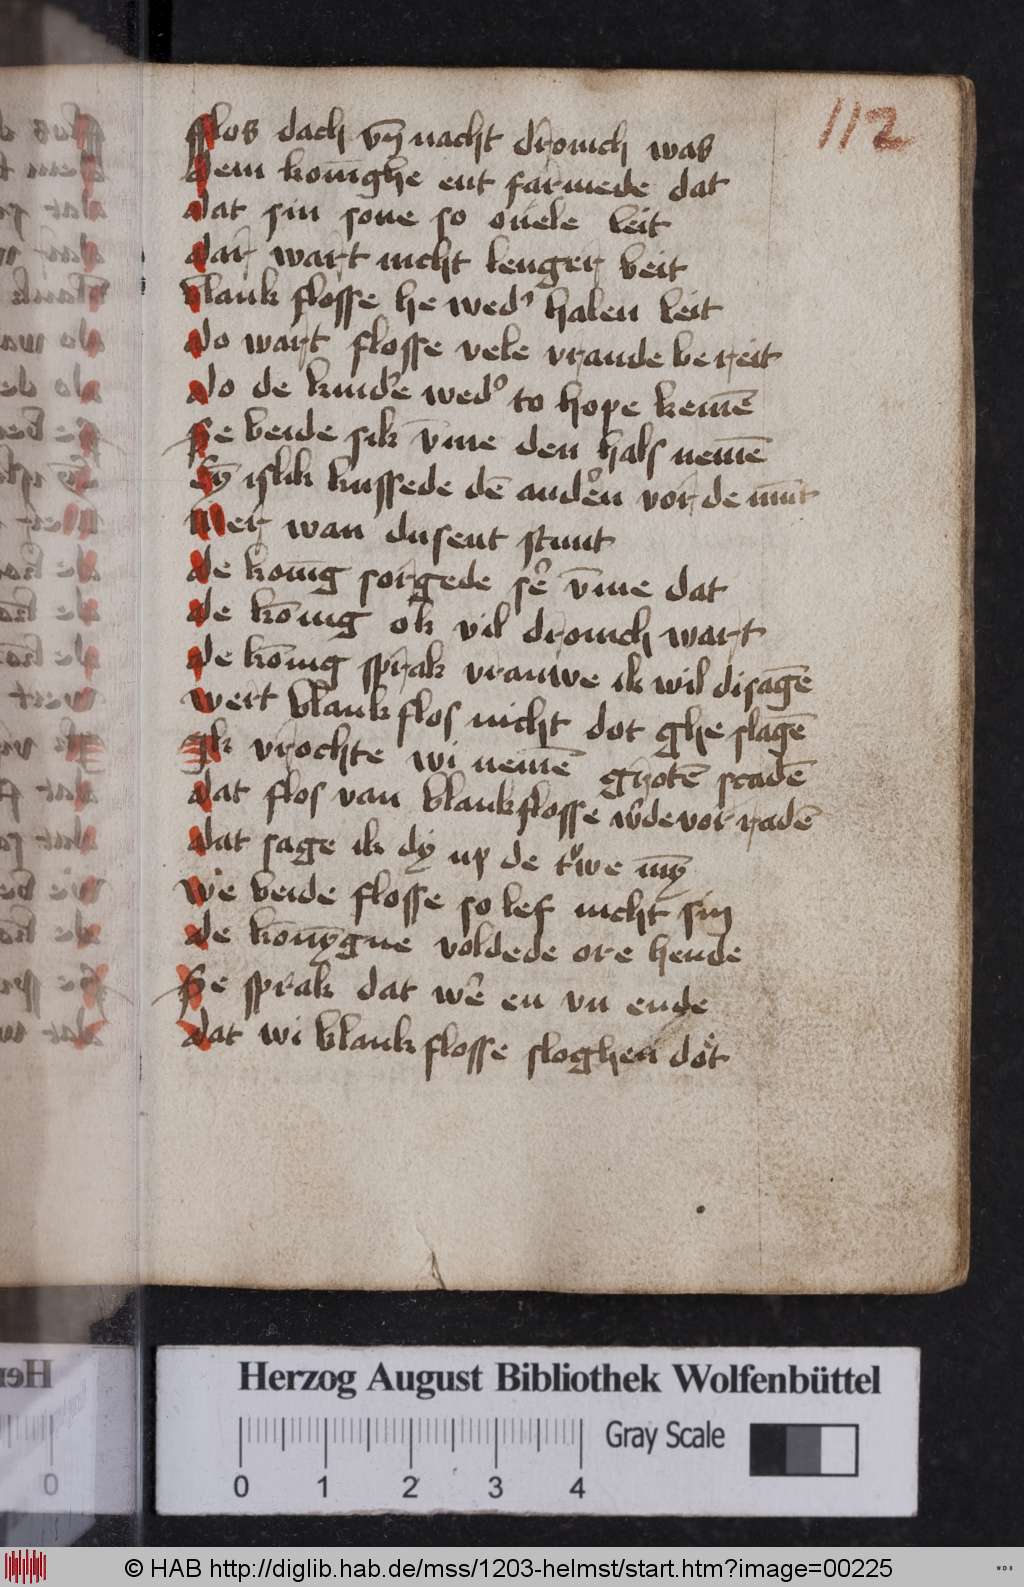 112
fflos dach vn̄ nacht drouich was
dem konīghe ent farmede dat
dat sin sone so ouele leit
dar wart nicht lenger beit
blank flosse he wedʼ halen leit
do wart flosse vele vrande bereit
do de kindʼe wedʼ to hope kemē
Se beide sik v̄me den hals nemē
Eȳ islik kussede dē andʼen vor de mūt
Mer wan dusent stunt
de konīg sorgede sēʼ v̄me dat
de kōnig ok vil drouich wart
de kōnig sprak vrauwe ik wil di sagē
wert blankflos nicht dot ghe slagē
Ik vrochte wi nemē grotē scadē
dat flos van blankflosse wʼde vor radē
dat sage ik dy up de trʷwe mȳ
wʼe beide flosse so lef nicht sin
de konȳgne voldede ore hende
Se sprak dat wēʼ en vn ende
dat wi blankflosse sloghen doͤt
Herzog August Bibliothek Wolfenbüttel
Gray Scale
0 1 2 3 4
© HAB http://diglib.hab.de/mss/1203-helmst/start.htm?image=00225